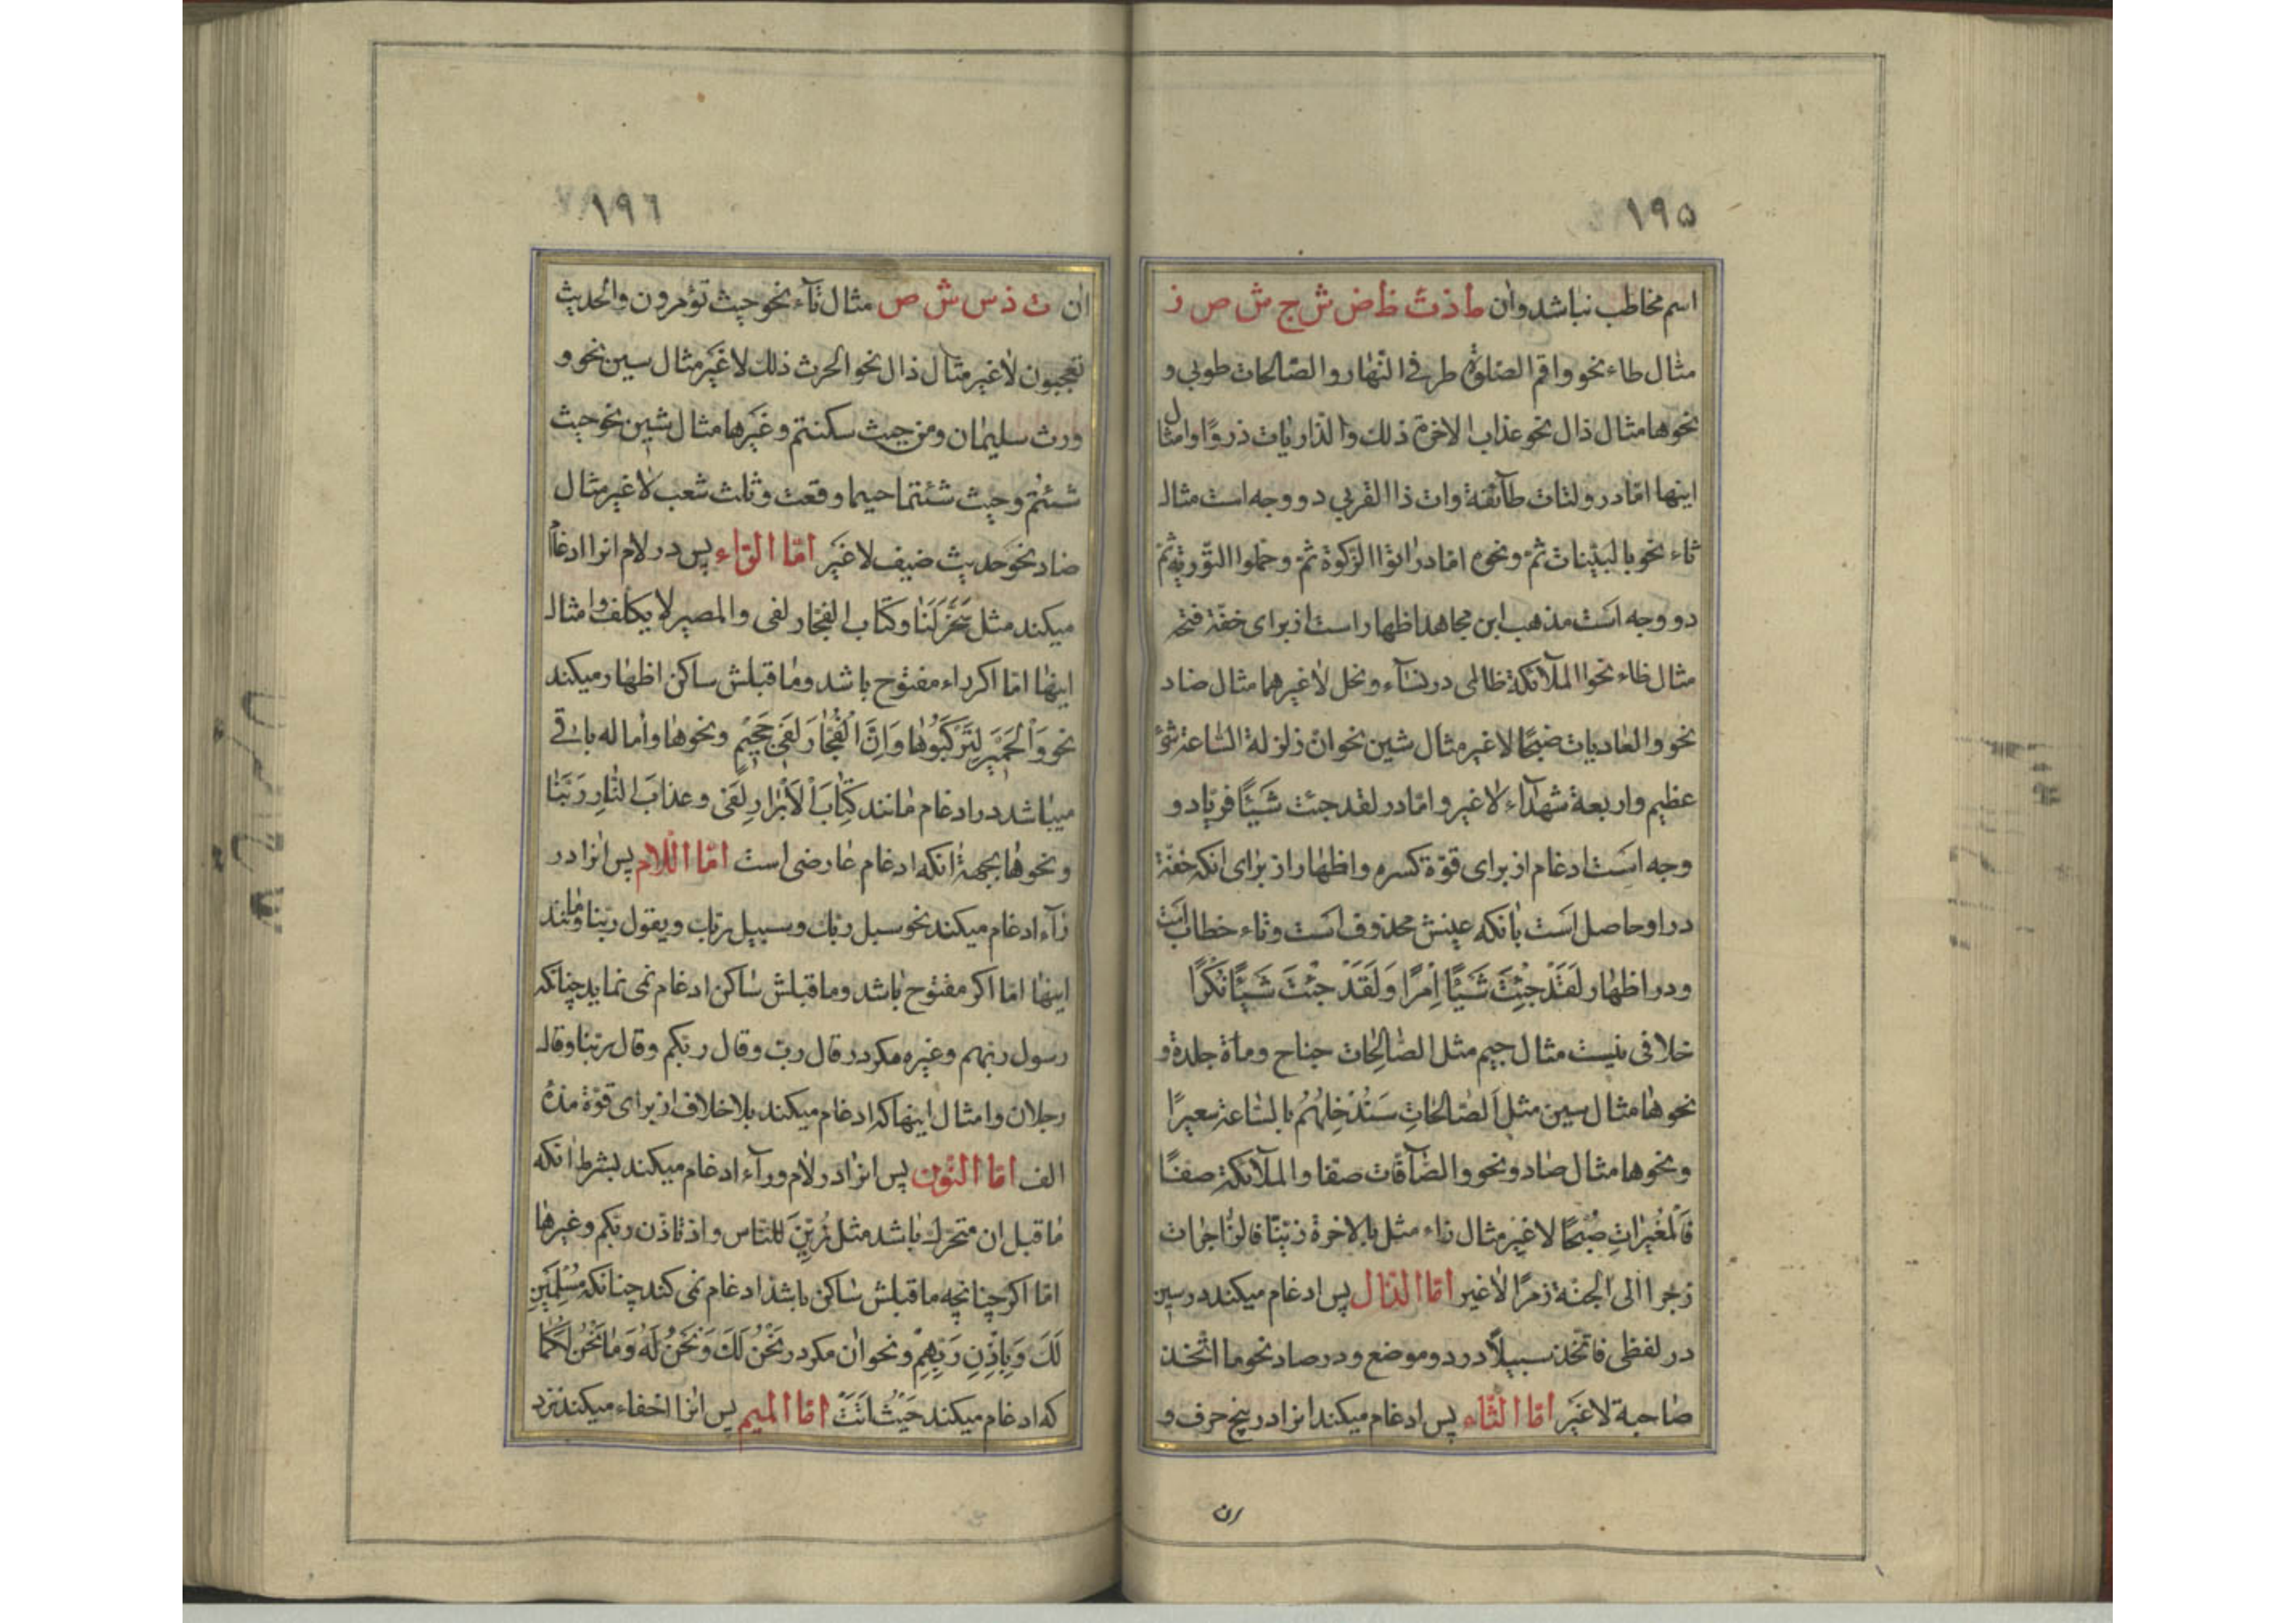 ۱۹۵
اسم مخاطب نباشد وان ط ذ ث ظ ض ش ج س ص ز
مثال طاء نحو واقم الصلوة طرفی النّهار والصّالحات طوبی و
نحوها مثال ذال نحو عذاب الاخرة ذلك والذّاریات ذروًا وامثال
اینها امّا در ولتات طآئفة وات ذا القربی دو وجه است مثال
ثاء نحو بالبیّنات ثمّ ونحوه امّا در اتوا الزّکوة ثمّ وحمّلوا التّوریة ثمّ
دو وجه است مذهب ابن مجاهد اظهار است از برای خفّة فتحه
مثال ظاء نحو الملآئکة ظالمی در نسآء ونحل لا غیرهما مثال ضاد
نحو والعادیات ضبحًا لا غیر مثال شین نحو انّ زلزلة السّاعة شئ
عظیم واربعة شهدآء لا غیر وامّا در لقد جئت شیئًا فریّا دو
وجه است ادغام از برای قوّة کسره واظهار از برای انکه خفّة
در او حاصل است بانکه عینش محذوف است وتاء خطاب است
ودر اظهار لَقَدْ جِئْتَ شَیْئًا اِمْرًا وَلَقَدْ جِئْتَ شَیْئًا نُکْرًا
خلافی نیست مثال جیم مثل الصّالِحات جناح ومأة جلدة و
نحوها مثال سین مثل اَلصّالِحاتِ سَنُدْخِلُهُمْ بالسّاعة سعیرًا
ونحوها مثال صاد ونحو والصّآفّات صفّا والملآئکة صفًّا
فَالْمُغیراتِ صُبْحًا لا غیر مثال زاء مثل بالاخرة زیّنّا فالزّاجرات
زجرا الی الجنّة زمرًا لا غیر امّا الذّال پس ادغام میکند در سین
در لفظی فاتّخذ سبیلاً در دو موضع ودر صاد نحو ما اتّخذ
صاحبة لا غیر امّا الثّاء پس ادغام میکند انرا در پنج حرف و
ان
۱۹٦
ان ت ذ س ش ض مثال تآء نحو حیث تؤمرون والحدیث
تعجبون لا غیر مثال ذال نحو الحرث ذلك لا غیر مثال سین نحو و
ورث سلیمان ومن حیث سکنتم وغیرها مثال شین نحو حیث
شئتُم وحیث شئتما حیما وقعت وثلث شعب لا غیر مثال
ضاد نحو حدیث ضیف لا غیر امّا الرّاء پس در لام انرا ادغام
میکند مثل سَخَّرَ لَنَا وکتاب الفجّار لفی والمصیر لا یکلّف وامثال
اینها امّا اکر راء مفتوح باشد وما قبلش ساکن اظهار میکند
نحو وَالْحَمیرَ لِتَرْکَبُوها وَاِنَّ الْفُجّارَ لَفی جَحیمٍ ونحوها واماله باقی
میباشد در ادغام مانند کِتابَ الْاَبْرارِ لَفی وعذابَ النّارِ رَبَّنا
ونحوها بجهة انکه ادغام عارضی است امّا اللّام پس انرا در
رآء ادغام میکند نحو سبل ربّك وسبیل ربّك ویقول ربّنا ومانند
اینها امّا اکر مفتوح باشد وما قبلش ساکن ادغام نمی نماید چنانکه
رسول ربّهم وغیره مکر در قال ربّ وقال ربّکم وقال ربّنا وقال
رجلان وامثال اینها که ادغام میکند بلا خلاف از برای قوّة مدّة
الف امّا النّون پس انرا در لام ورآء ادغام میکند بشرط انکه
ما قبل ان متحرّك باشد مثل زُیِّنَ للنّاس واذ تاذّن ربّکم وغیرها
امّا اکر چنانچه ما قبلش ساکن باشد ادغام نمی کند چنانکه مُسْلِمَیْنِ
لَكَ وَبِاِذْنِ رَبِّهِمْ ونحو ان مکر در نَحْنُ لَكَ وَنَحْنُ لَهُ وَما نَحْنُ لَکُما
که ادغام میکند حَیْثُ اَتَتْ امّا المیم پس انرا اخفاء میکند نزد